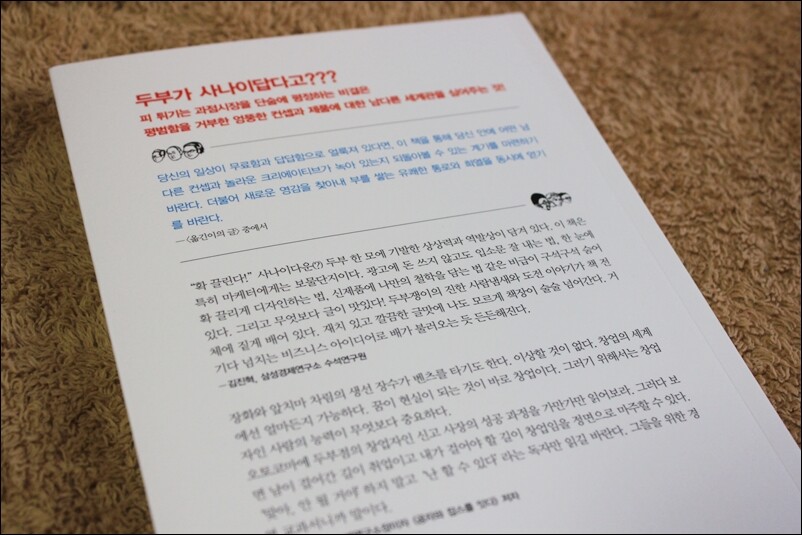 두부가 사나이답다고???
피 튀기는 과정시장을 단숨에 평정하는 비결은
평범함을 거부한 엉뚱한 컨셉과 제품에 대한 남다른 세계관을 심어주는 것!
당신의 일상이 무료함과 답답함으로 얼룩져 있다면, 이 책을 통해 당신 안에 어떤 남
다른 컨셉과 놀라운 크리에이티브가 녹아 있는지 되돌아볼 수 있는 계기를 마련하기
바란다. 더불어 새로운 영감을 찾아내 부를 쌓는 유쾌한 통로와 희열을 동시에 얻기
를 바란다.
—〈옮긴이의 글〉 중에서
“확 끌린다!” 사나이다운(?) 두부 한 모에 기발한 상상력과 역발상이 담겨 있다. 이 책은
특히 마케터에게는 보물단지이다. 광고에 돈 쓰지 않고도 입소문 잘 내는 법, 한 눈에
확 끌리게 디자인하는 법, 신제품에 나만의 철학을 담는 법 같은 비급이 구석구석 숨어
있다. 그리고 무엇보다 글이 맛있다! 두부쟁이의 진한 사람냄새와 도전 이야기가 책 전
체에 짙게 배어 있다. 재치 있고 깔끔한 글맛에 나도 모르게 책장이 술술 넘어간다. 거
기다 넘치는 비즈니스 아이디어로 배가 불러오는 듯 든든해진다.
—김진혁, 삼성경제연구소 수석연구원
장화와 앞치마 차림의 생선 장수가 벤츠를 타기도 한다. 이상할 것이 없다. 창업의 세계
에선 얼마든지 가능하다. 꿈이 현실이 되는 것이 바로 창업이다. 그러기 위해서는 창업
자인 사람의 능력이 무엇보다 중요하다.
오토코마에 두부점의 창업자인 신고 사장의 성공 과정을 가만가만 읽어보라. 그러다 보
면 남이 걸어간 길이 취업이고 내가 걸어야 할 길이 창업임을 정면으로 마주할 수 있다.
‘맞아, 안 될 거야’ 하지 말고 ‘난 할 수 있다’ 라는 독자만 읽길 바란다. 그들을 위한 경
교과서니까 말이다.
저자